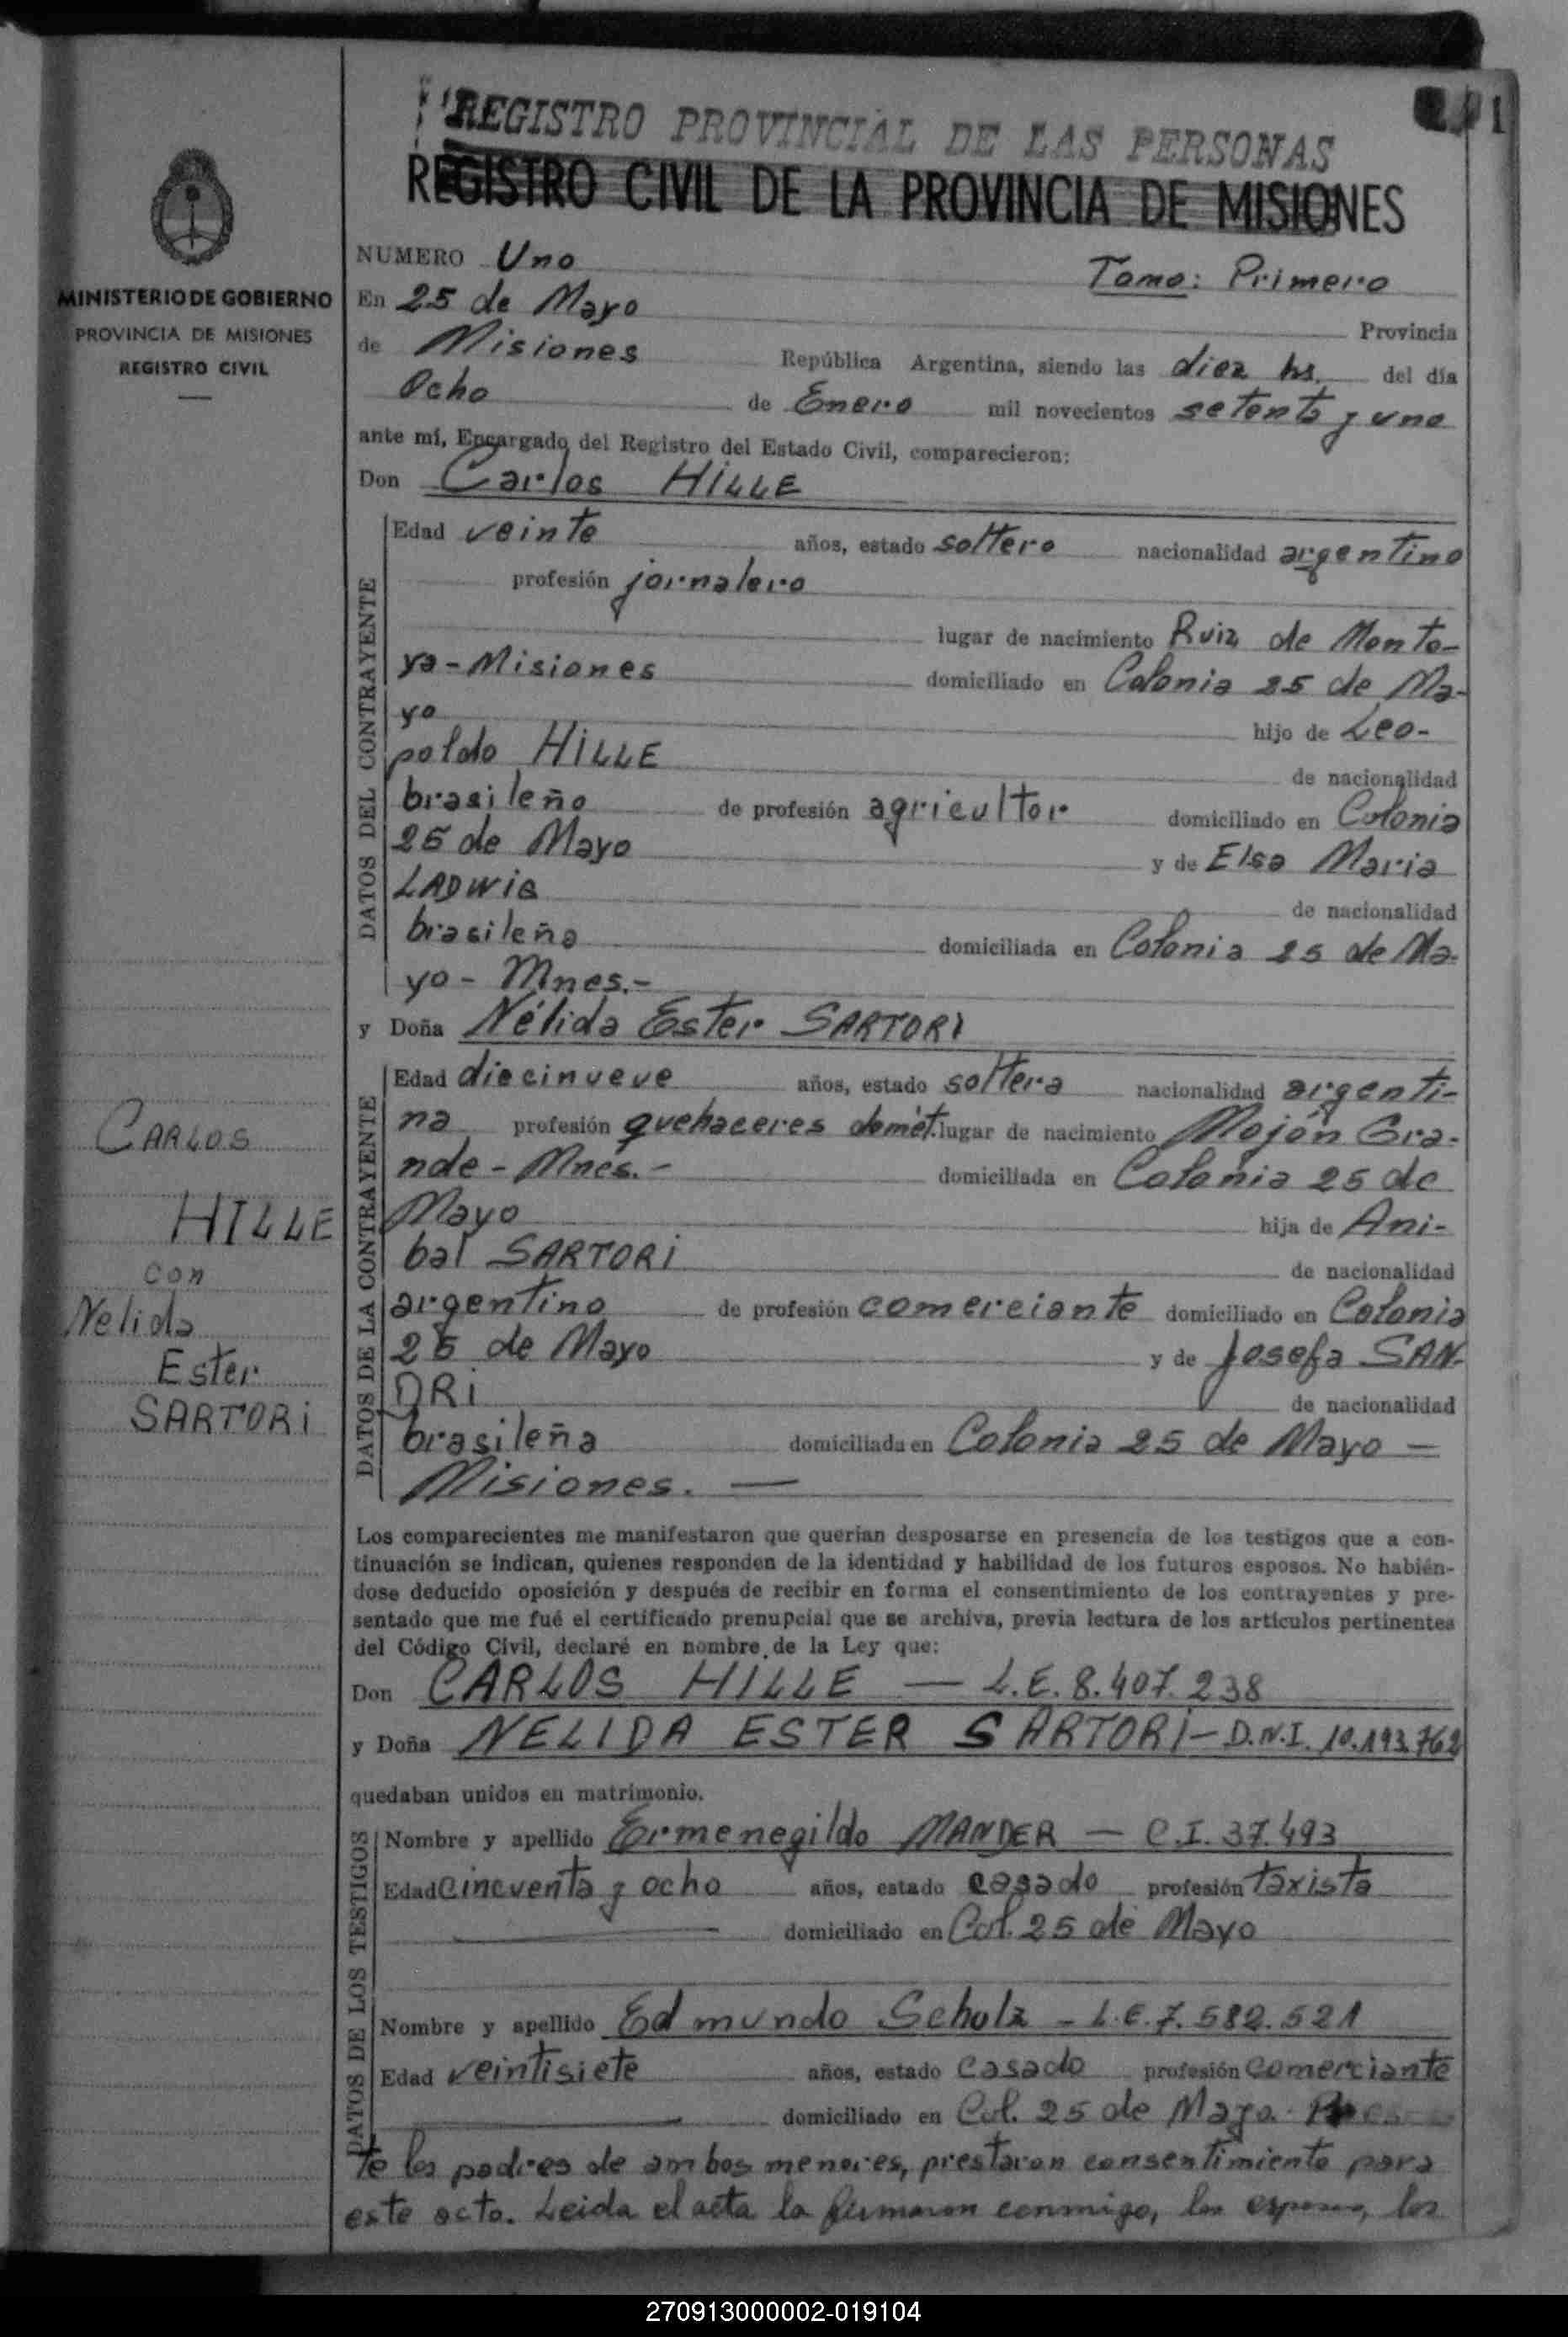 REGISTRO PROVINCIAL DE LAS PERSONAS
1
REGISTRO CIVIL DE LA PROVINCIA DE MISIONES
MINISTERIO DE GOBIERNO
PROVINCIA DE MISIONES
REGISTRO CIVIL
NUMERO Uno
Tomo: Primero
En 25 de Mayo
Provincia
de Misiones República Argentina, siendo las diez hs. del día
Ocho de Enero mil novecientos setenta y uno
ante mí, Encargado del Registro del Estado Civil, comparecieron:
Don Carlos HILLE
DATOS DEL CONTRAYENTE
Edad veinte años, estado soltero nacionalidad argentino
profesión jornalero
lugar de nacimiento Ruiz de Monto-
ya - Misiones domiciliado en Colonia 25 de Ma-
yo hijo de Leo-
poldo HILLE de nacionalidad
brasileño de profesión agricultor domiciliado en Colonia
25 de Mayo y de Elsa Maria
LADWIG de nacionalidad
brasileña domiciliada en Colonia 25 de Ma-
yo - Mnes.-
y Doña Nélida Ester SARTORI
DATOS DE LA CONTRAYENTE
Edad diecinueve años, estado soltera nacionalidad argenti-
na profesión quehaceres domét. lugar de nacimiento Mojón Gra-
nde - Mnes.- domiciliada en Colonia 25 de
Mayo hija de Ani-
bal SARTORI de nacionalidad
argentino de profesión comerciante domiciliado en Colonia
25 de Mayo y de Josefa SAN-
DRI de nacionalidad
brasileña domiciliada en Colonia 25 de Mayo —
Misiones. —
CARLOS
HILLE
con
Nelida
Ester
SARTORI
Los comparecientes me manifestaron que querían desposarse en presencia de los testigos que a con-
tinuación se indican, quienes responden de la identidad y habilidad de los futuros esposos. No habién-
dose deducido oposición y después de recibir en forma el consentimiento de los contrayentes y pre-
sentado que me fué el certificado prenupcial que se archiva, previa lectura de los artículos pertinentes
del Código Civil, declaré en nombre de la Ley que:
Don CARLOS HILLE — L.E. 8.407.238
y Doña NELIDA ESTER SARTORI - D.N.I. 10.193.762
quedaban unidos en matrimonio.
DATOS DE LOS TESTIGOS
Nombre y apellido Ermenegildo MANDER — C.I. 37.493
Edad cincuenta y ocho años, estado casado profesión taxista
domiciliado en Col. 25 de Mayo
Nombre y apellido Edmundo Scholz - L.E. 7.582.521
Edad veintisiete años, estado casado profesión comerciante
domiciliado en Col. 25 de Mayo.
te los padres de ambos menores, prestaron consentimiento para
este acto. Leida el acta la firmaron conmigo, los esposos, los
270913000002-019104